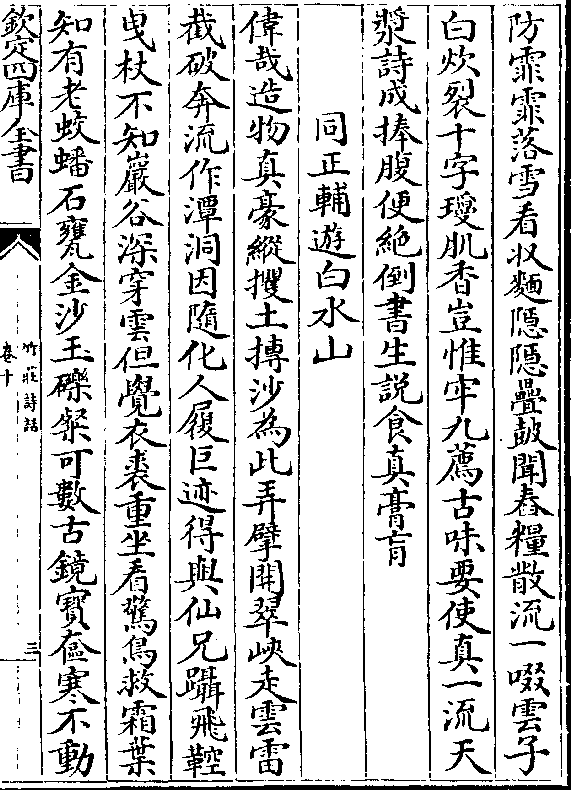 防霏霏落雪看收麵隠隠疊皷聞舂糧散流一啜雲子
白炊裂十字瓊肌香豈惟牢九薦古味要使真一流天
漿詩成捧腹便絶倒書生説食真膏肓
同正輔遊白水山
偉哉造物真豪縱攫土摶沙為此弄擘開翠峽走雲雷
截破奔流作潭洞因隨化人履巨迹得與仙兄躡飛鞚
曳杖不知巖谷深穿雲但覺衣裘重坐看驚鳥救霜葉
知有老蛟蟠石甕金沙玉礫粲可數古鏡寶奩寒不動
欽定四庫全書
竹莊詩話
卷十
三